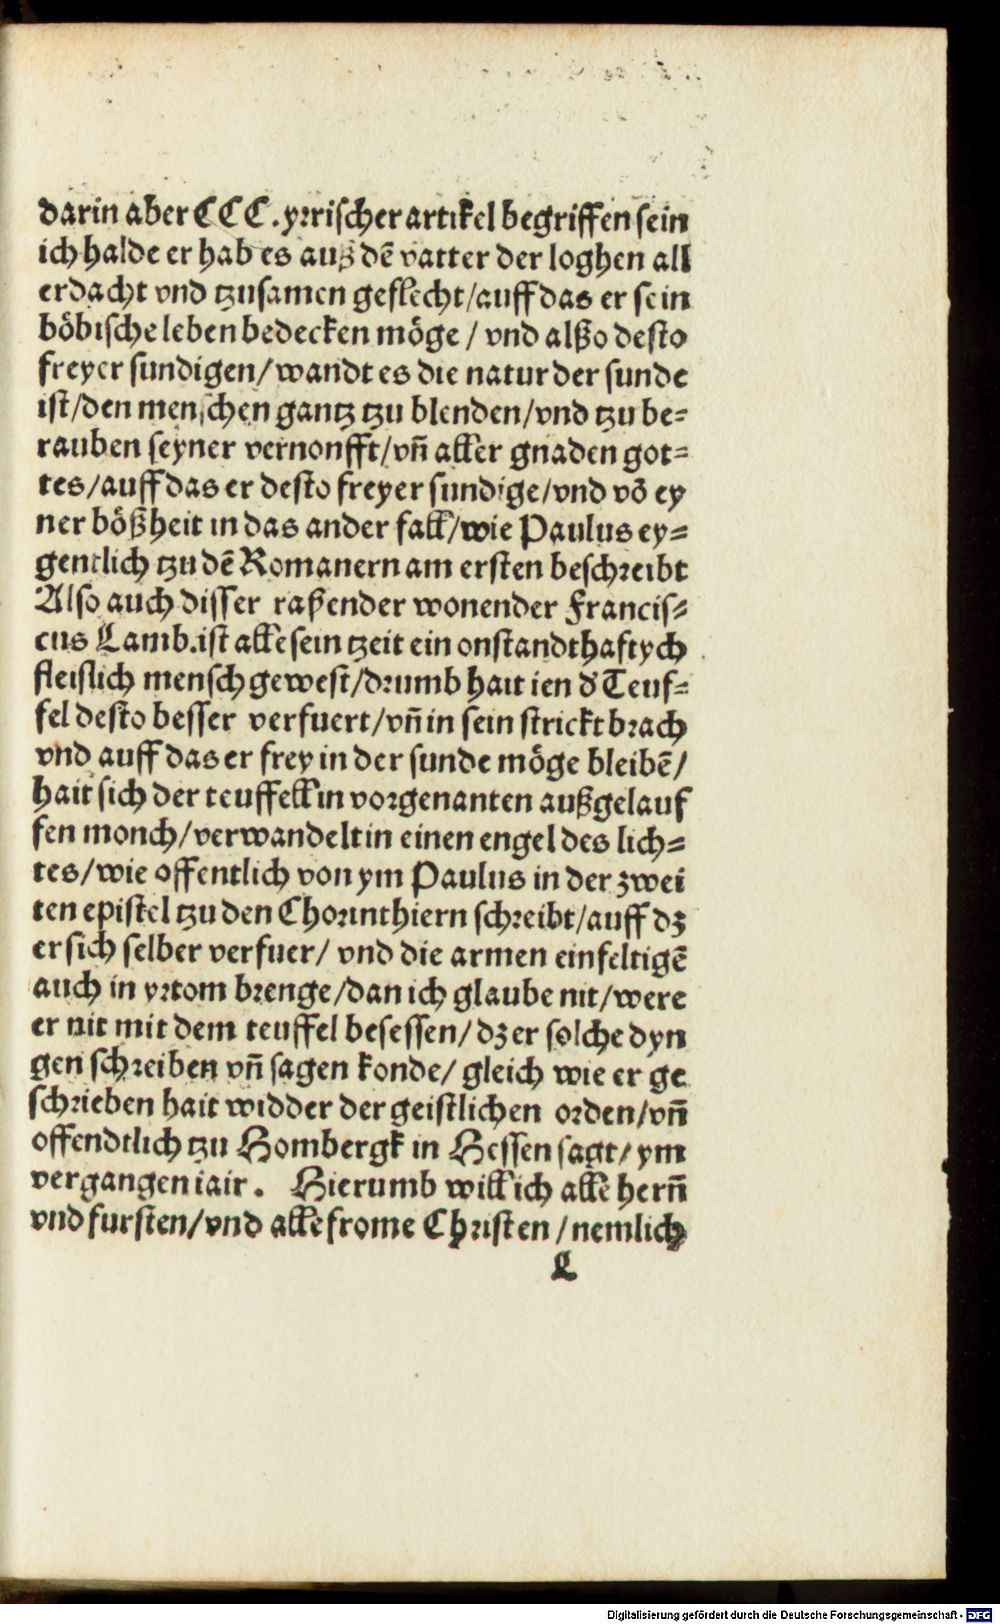 darin aber CCC. yrrischer artikel begriffen sein
ich halde er hab es auß dē vatter der loghen all
erdacht vnd tzusamen geflecht/auff das er sein
böbische leben bedecken möge / vnd alßo desto
freyer sundigen/wandt es die natur der sunde
ist/den menschen gantz tzu blenden/vnd tzu be⸗
rauben seyner vernonfft/vn̄ aller gnaden got⸗
tes/auff das er desto freyer sundige/vnd vō ey
ner bößheit in das ander fall/wie Paulus ey⸗
gentlich tzu dē Romanern am ersten beschreibt
Also auch disser raßender wonender Francis⸗
cus Lamb. ist alle sein tzeit ein onstandthaftych
fleislich mensch gewest/drumb hait ien d' Teuf⸗
fel desto besser verfuert/vn̄ in sein strickt brach
vnd auff das er frey in der sunde möge bleibē/
hait sich der teuffell in vorgenanten außgelauf
fen monch/verwandelt in einen engel des lich⸗
tes/wie offentlich von ym Paulus in der zwei
ten epistel tzu den Chorinthiern schreibt/auff dz
er sich selber verfuer/ vnd die armen einfeltigē
auch in yrtom brenge/dan ich glaube nit/were
er nit mit dem teuffel besessen/ dz er solche dyn
gen schreiben vn̄ sagen konde/ gleich wie er ge
schrieben hait widder der geistlichen orden/vn̄
offendtlich tzu Hombergk in Hessen sagt/ ym
vergangen iair. Hierumb will ich alle hern̄
vnd fursten/vnd alle frome Christen /nemlich
L
Digitalisierung gefördert durch die Deutsche Forschungsgemeinschaft - DFG